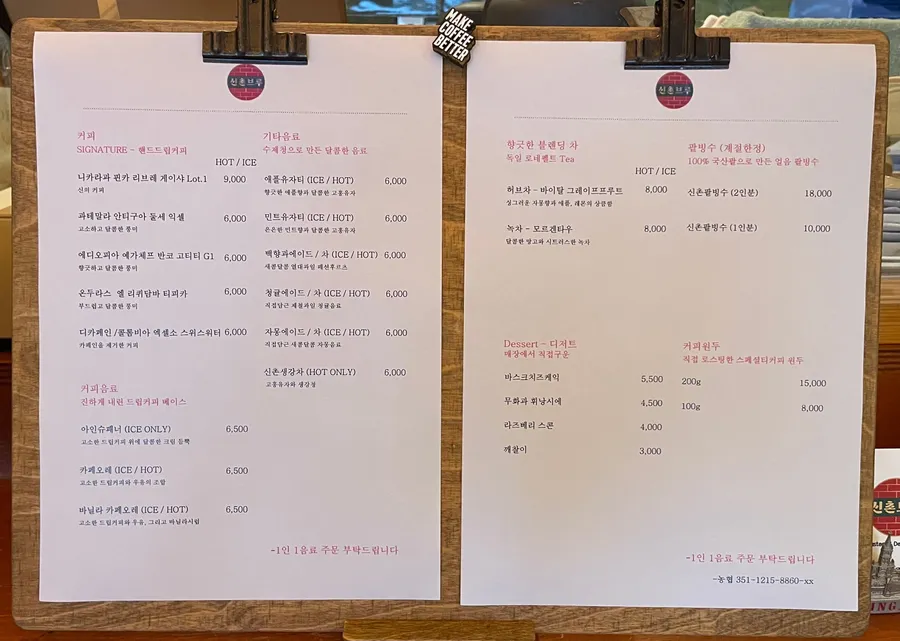 MAKE
COFFEE
BETTER
신촌브루
커피
SIGNATURE - 핸드드립커피
HOT / ICE
니카라과 핀카 리브레 게이샤 Lot.1 9,000
신의 커피
과테말라 안티구아 둘세 익셀 6,000
고소하고 달콤한 풍미
에디오피아 예가체프 반코 고티티 G1 6,000
향긋하고 달콤한 풍미
온두라스 엘 리퀴담바 티피카 6,000
부드럽고 달콤한 풍미
디카페인 /콜롬비아 엑셀소 스위스워터 6,000
카페인을 제거한 커피
커피음료
진하게 내린 드립커피 베이스
아인슈패너 (ICE ONLY) 6,500
고소한 드립커피 위에 달콤한 크림 듬뿍
카페오레 (ICE / HOT) 6,500
고소한 드립커피와 우유의 조합
바닐라 카페오레 (ICE / HOT) 6,500
고소한 드립커피와 우유, 그리고 바닐라시럽
기타음료
수제청으로 만든 달콤한 음료
애플유자티 (ICE / HOT) 6,000
향긋한 애플향과 달콤한 고흥유자
민트유자티 (ICE / HOT) 6,000
은은한 민트향과 달콤한 고흥유자
백향과에이드 / 차 (ICE / HOT) 6,000
새콤달콤 열대과일 패션후르츠
청귤에이드 / 차 (ICE / HOT) 6,000
직접담근 제철과일 청귤음료
자몽에이드 / 차 (ICE / HOT) 6,000
직접담근 새콤달콤 자몽음료
신촌생강차 (HOT ONLY) 6,000
고흥유자와 생강청
-1인 1음료 주문 부탁드립니다
신촌브루
향긋한 블렌딩 차
독일 로네펠트 Tea
HOT / ICE
허브차 - 바이탈 그레이프프루트 8,000
싱그러운 자몽향과 애플, 레몬의 상큼함
녹차 - 모르겐타우 8,000
달콤한 망고와 시트러스한 녹차
팥빙수 (계절한정)
100% 국산팥으로 만든 얼음 팥빙수
신촌팥빙수 (2인분) 18,000
신촌팥빙수 (1인분) 10,000
Dessert - 디저트
매장에서 직접구운
바스크치즈케익 5,500
무화과 휘낭시에 4,500
라즈베리 스콘 4,000
깨찰이 3,000
커피원두
직접 로스팅한 스페셜티커피 원두
200g 15,000
100g 8,000
-1인 1음료 주문 부탁드립니다
-농협 351-1215-8860-xx